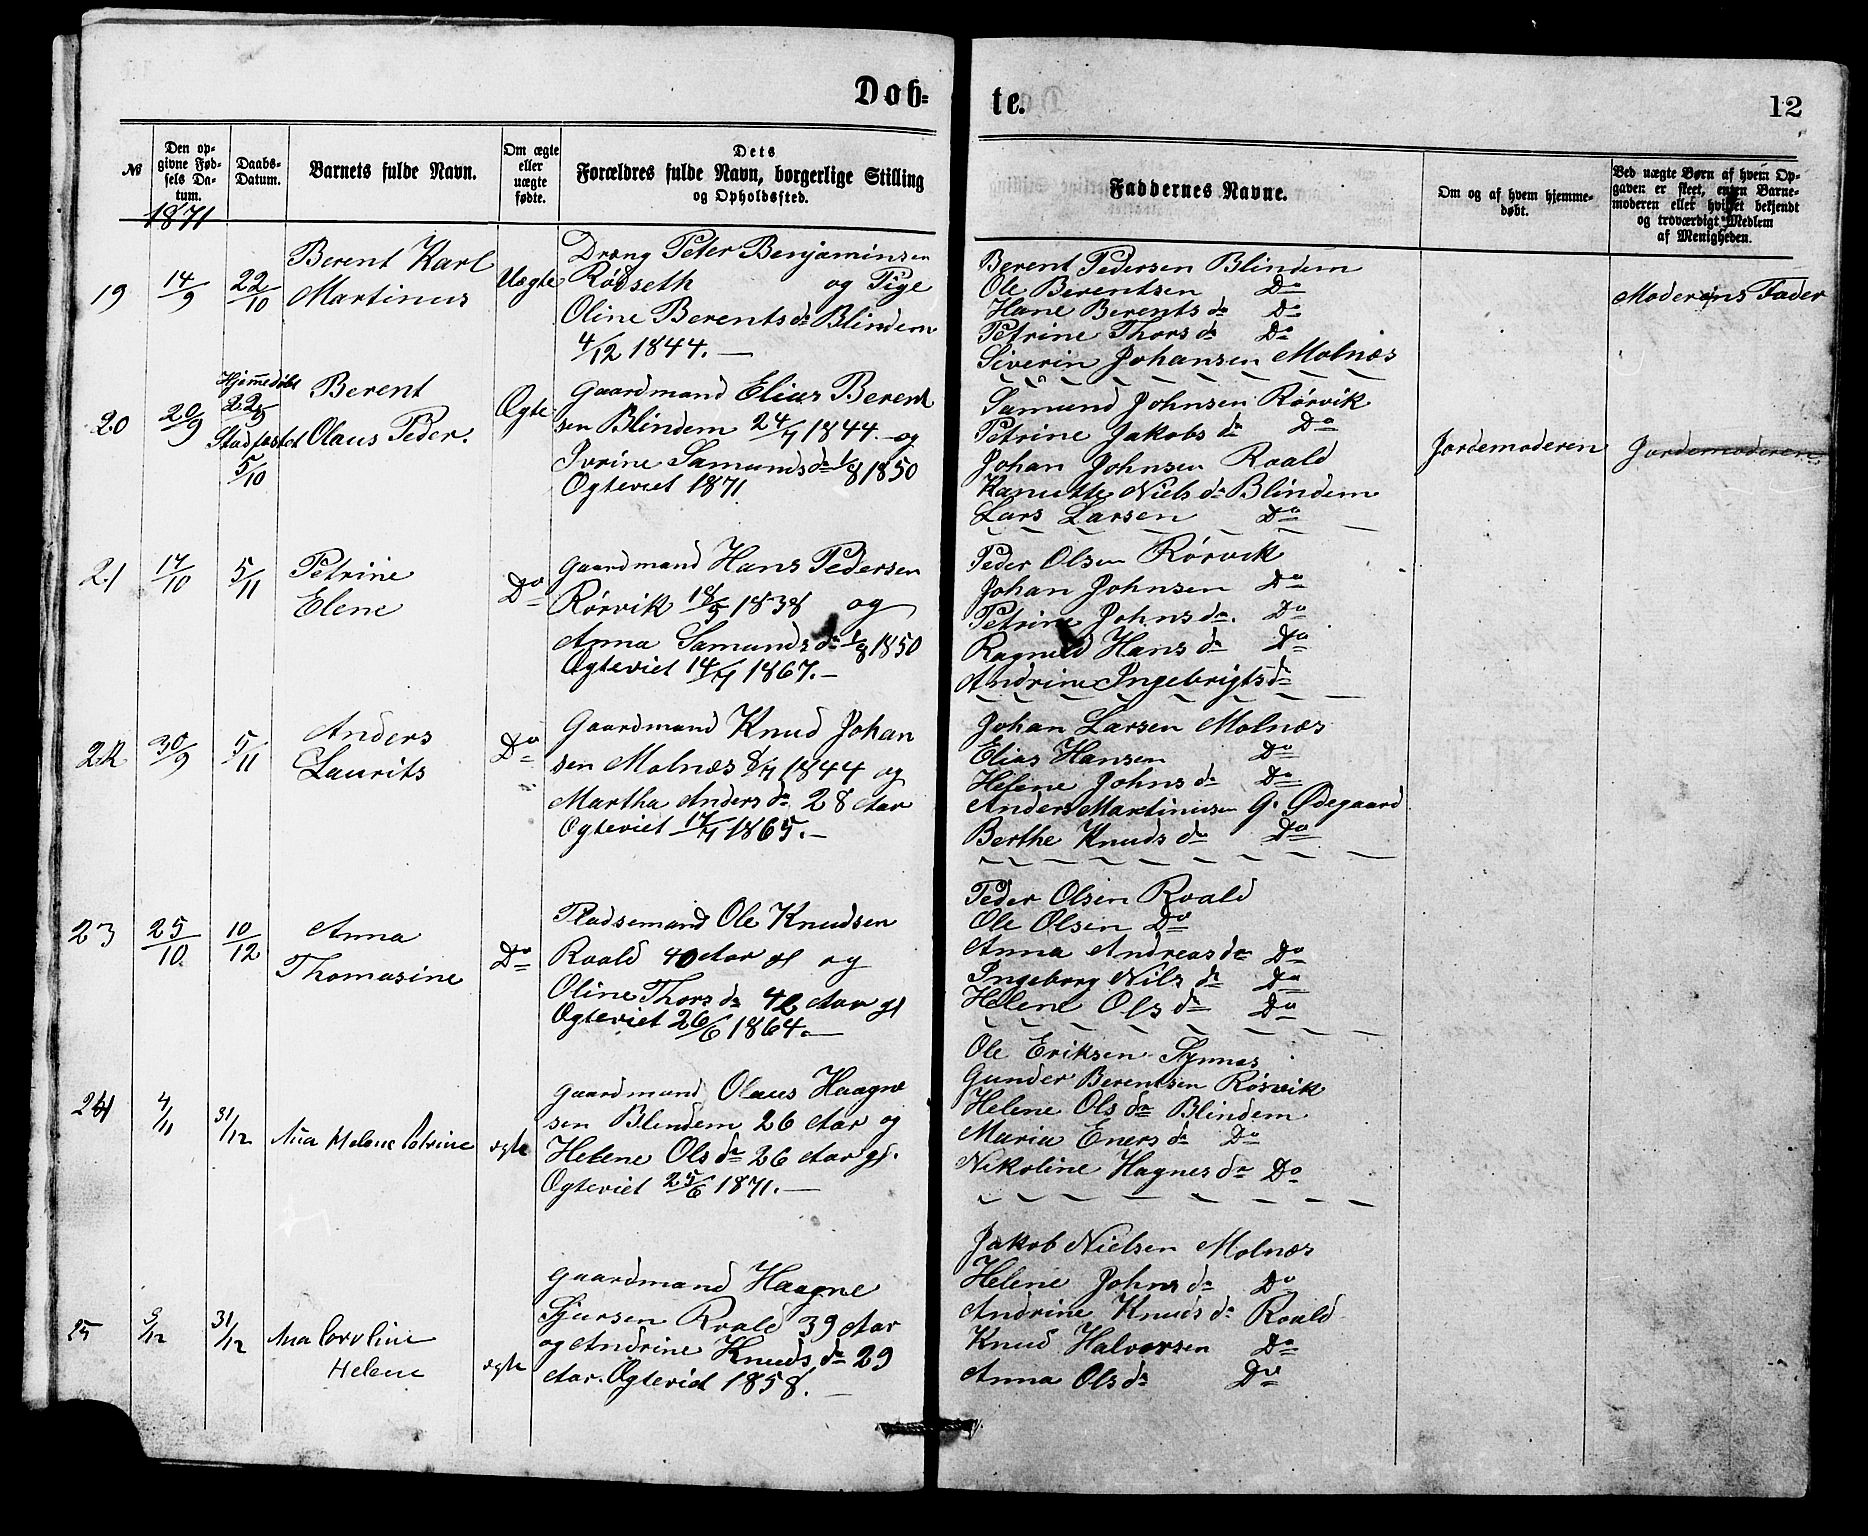 Døb=
te.
12
№
Den op-
givne Fød-
sels Da-
tum.
1871
Daabs-
Datum.
Barnets fulde Navn.
Om ægte
eller
uægte
fødte.
Dets
Forældres fulde Navn, borgerlige Stilling
og Opholdssted.
Faddernes Navne.
Om og af hvem hjemme-
døbt.
Ved uægte Børn af hvem Op-
gaven er skeet, enten Barne-
moderen eller hvilket bekjendt
og troværdigt Medlem
af Menigheden.
19
14/9
22/10
Berent Karl
Martinus
Uægte
Dræng Peter Benjaminsen
Rødseth og Pige
Oline Berents dr Blindem
4/12 1844. —
Berent Pedersen Blindem
Ole Berentsen Do
Hane Berents dr Do
Petrine Thors dr Do
Siverin Johansen Molnæs
Moderens Fader
20
20/9
Hjemmedøbt
22/9
Stadfæstet
5/10
Berent
Olaus Peder.
Ægte
Gaardmand Elias Berent
sen Blindem 24/7 1844. og
Ivrine Samunds dr 1/8 1850
Ægteviet 1871
Samund Johnsen Rørvik
Petrine Jakobs dr Do
Johan Johnsen Roald
Kanutte Niels dr Blindem
Lars Larsen Do
Jordemoderen
Jordemoderen
21
17/10
5/11
Petrine
Elene
Do
Gaardmand Hans Pedersen
Rørvik 18/5 1838 og
Anna Samunds dr 1/8 1850
Ægteviet 14/7 1867. —
Peder Olsen Rørvik
Johan Johnsen Do
Petrine Johns dr. Do
Ragnild Hans dr Do
Andrine Ingebrigts dr
22
30/9
5/11
Anders
Laurits
Do
Gaardmand Knud Johan
sen Molnæs 8/7 1844 og
Martha Anders dr 28 Aar
Ægteviet 17/7 1865. —
Johan Larsen Molnæs
Elias Hansen Do
Helene Johns dr Do
Anders Martinusen G. Ødegaard
Berthe Knuds dr Do
23
25/10
10/12
Anna
Thomasine
Do
Pladsemand Ole Knudsen
Roald 40 Aar gl og
Oline Thors dr 42 Aar gl
Ægteviet 26/6 1864. —
Peder Olsen Roald
Ole Olsen Do
Anna Andreas dr Do
Ingeborg Nils dr Do
Helene Ols dr Do
24
4/11
31/12
Ana Helene Petrine
ægte
Gaardmand Olaus Haagne
sen Blindem 26 Aar og
Helene Ols dr 26 Aar gl.
Ægteviet 25/6 1871. —
Ole Eriksen Synnes
Gunder Berentsen Rørvik
Helene Ols dr Blindem
Maria Eners dr Do
Nikoline Hagnes dr Do
25
9/12
31/12
Ana Caroline
Helene
ægte
Gaardmand Haagne
Sjursen Roald 39 Aar
og Andrine Knuds dr 29
Aar. Ægteviet 1858. —
Jakob Nielsen Molnæs
Helene Johns dr Do
Andrine Knuds dr Roald
Knud Halvorsen Do
Anna Ols dr Do